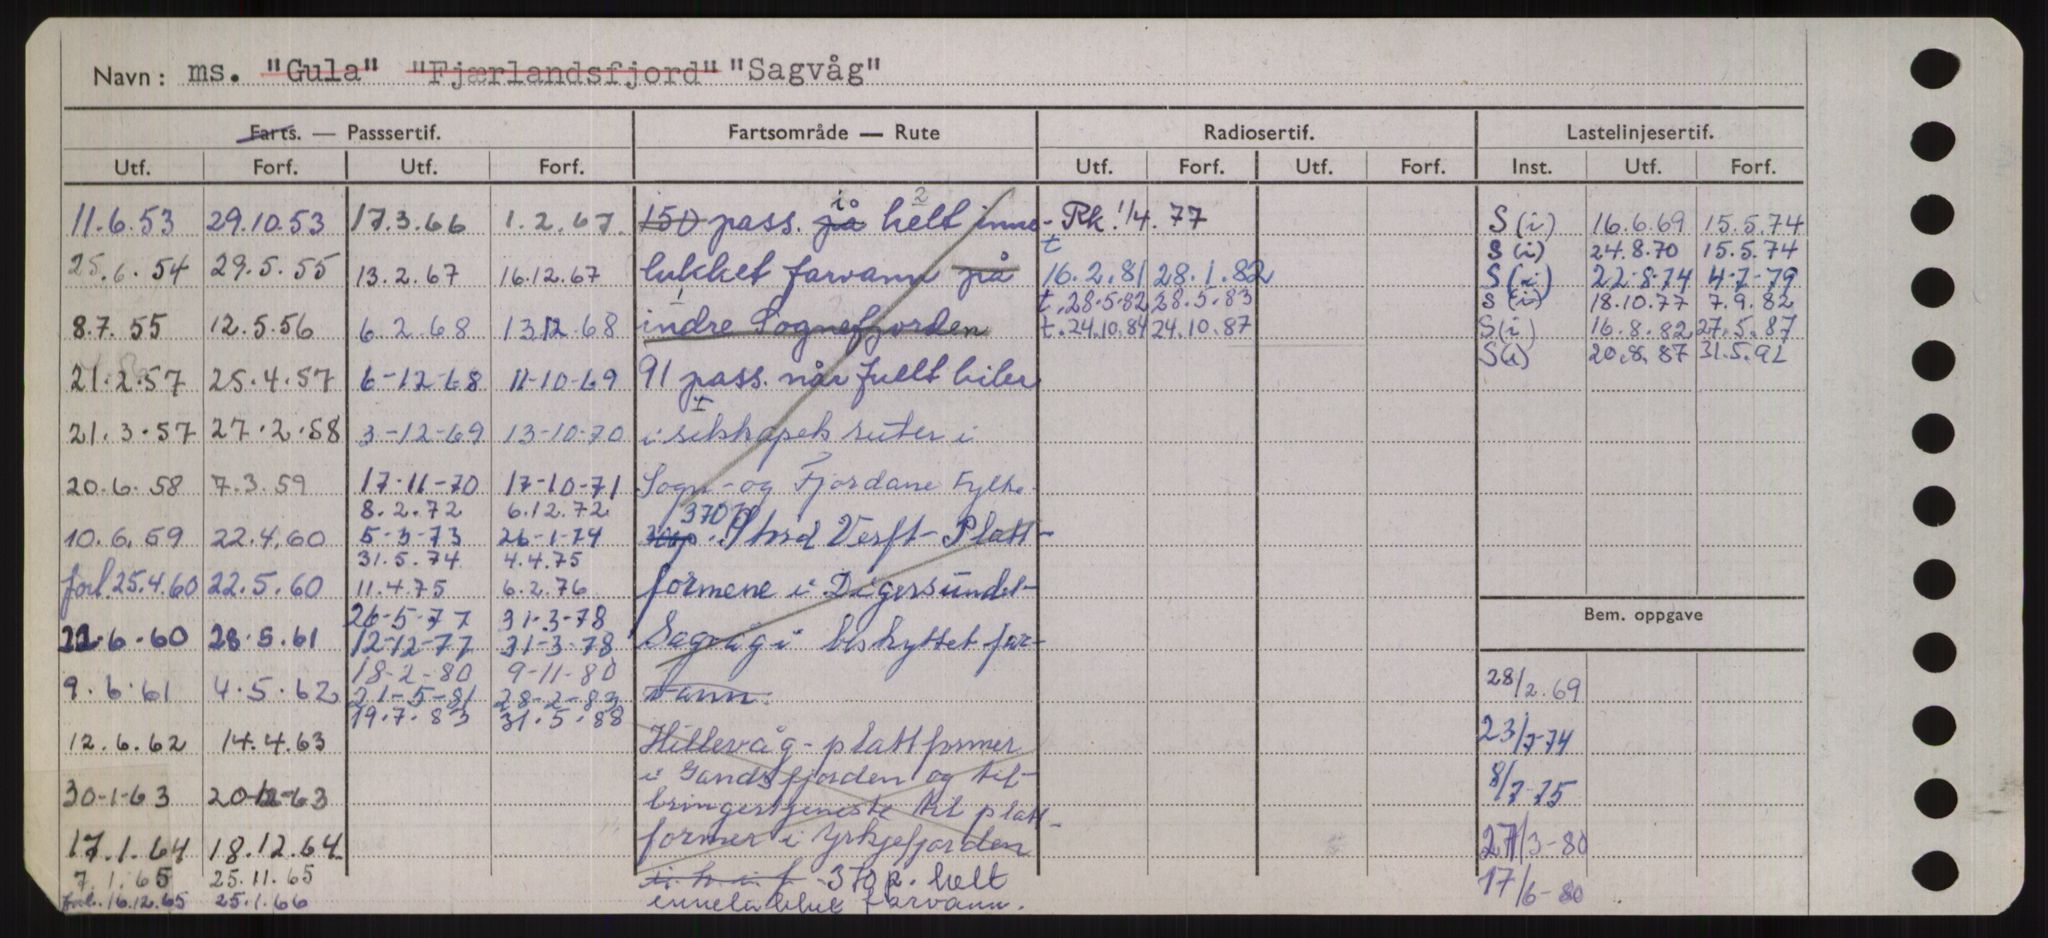 Navn: ms. "Gula" "Fjærlandsfjord" "Sagvåg"
Farts. — Passsertif. Fartsområde — Rute Radiosertif. Lastelinjesertif.
Utf. Forf. Utf. Forf. Utf. Forf. Utf. Forf. Inst. Utf. Forf.
11.6.53 29.10.53 17.3.66 1.2.67. 150 pass. på i helt 2 inne- Rk. 1/4. 77 S(i) 16.6.69 15.5.74
S(i) 24.8.70 15.5.74
25.6.54 29.5.55 13.2.67 16.12.67 lukket farvann på t 16.2.81 28.1.82 S(i) 22.8.74 4-7-79
t. 28.5.82 28.5.83 S(i) 18.10.77 7.9.82
8.7.55 12.5.56 6.2.68 13.12.68 indre Sognefjorden t. 24.10.84 24.10.87 S(i) 16.8.82 27.5.87
S(i) 20.8.87 31.5.92
21.2.57 25.4.57 6-12-68 11-10-69 91 pass. når fullt biler
21.3.57 27.2.58 3-12-69 13-10-70 i selskapets ruter i
20.6.58 7.3.59 17-11-70 17-10-71 Sogn- og Fjordane Fylke.
8.2.72 6.12.72 370
10.6.59 22.4.60 5-3-73 26-1-74 Stord Verft - Platt-
31.5.74 4.4.75
forl. 25.4.60 22.5.60 11.4.75 6.2.76 formene i Digersundet-
26-5-77 31-3-78
22.6.60 28.5.61 12-12-77 31-3-78 Sagvåg i beskyttet far-
18-2-80 9-11-80
9.6.61 4.5.62 21-5-81 28-2-83 vann.
19.7.83 31.5.88
12.6.62 14.4.63 Hillevåg - plattformer
i Gandsfjorden og til-
30-1-63 20-12-63 bringertjeneste til platt-
17.1.64 18.12.64 former i Yrkjefjorden
7.1.65 25.11.65 i h.i.f. 370 p. helt
forl. 16.12.65 25.1.66 innelukket farvann.
Bem. oppgave
28/2.69
23/7-74
8/7-75
27/3-80
17/6-80